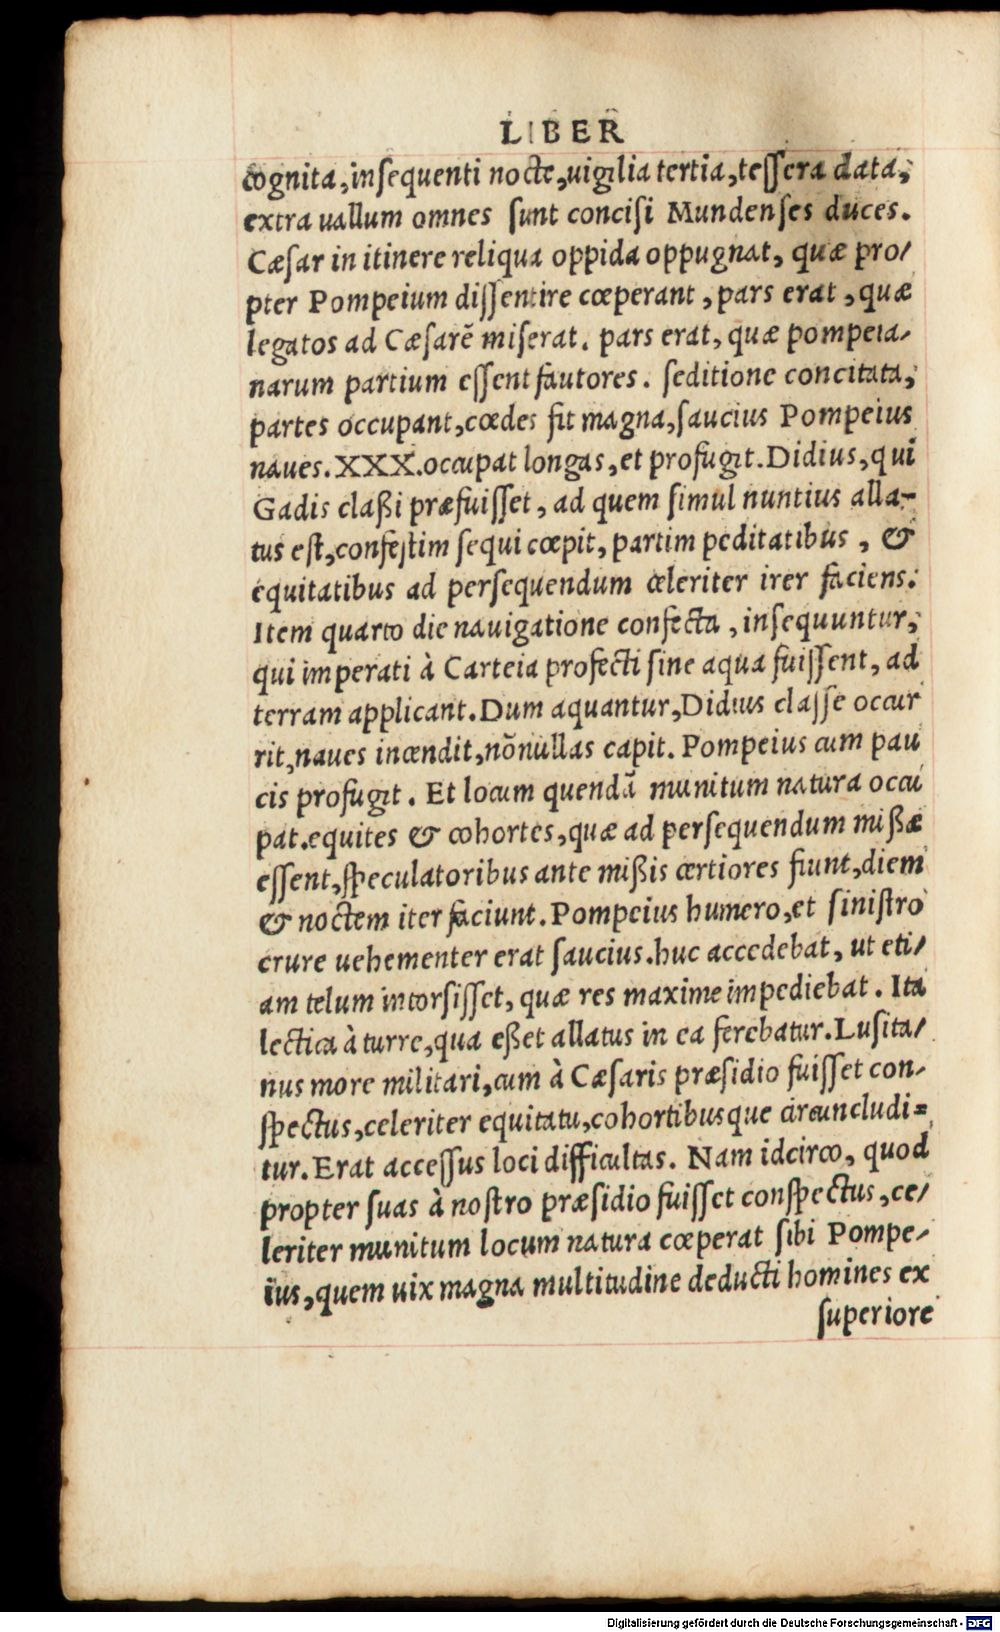 LIBER
cognita, insequenti nocte, uigilia tertia, teſſera data,
extra uallum omnes ſunt conciſi Mundenſes duces.
Cæſar in itinere reliqua oppida oppugnat, quæ pro/
pter Pompeium diſſentire cœperant, pars erat, quæ
legatos ad Cæſarē miſerat. pars erat, quæ pompeia/
narum partium eſſent fautores. ſeditione concitata,
partes occupant, cœdes fit magna, ſaucius Pompeius
naues. XXX. occupat longas, et profugit. Didius, qui
Gadis claßi præfuiſſet, ad quem ſimul nuntius alla-
tus eſt, confeſtim ſequi cœpit, partim peditatibus, &
equitatibus ad perſequendum celeriter irer faciens.
Item quarto die nauigatione confecta, inſequuntur,
qui imperati à Carteia profecti ſine aqua fuiſſent, ad
terram applicant. Dum aquantur, Didius claſſe occur
rit, naues incendit, nōnullas capit. Pompeius cum pau
cis profugit. Et locum quendā munitum natura occu
pat. equites & cohortes, quæ ad perſequendum mißæ
eſſent, ſpeculatoribus ante mißis certiores fiunt, diem
& noctem iter faciunt. Pompeius humero, et ſiniſtro
crure uehementer erat ſaucius. huc accedebat, ut eti/
am telum intorſiſſet, quæ res maxime impediebat. Ita
lectica à turre, qua eßet allatus in ea ferebatur. Luſita/
nus more militari, cum à Cæſaris præſidio fuiſſet con/
ſpectus, celeriter equitatu, cohortibusque circuncludi=
tur. Erat acceſſus loci difficultas. Nam idcirco, quod
propter ſuas à noſtro præſidio fuiſſet conſpectus, ce/
leriter munitum locum natura cœperat ſibi Pompe/
ius, quem uix magna multitudine deducti homines ex
ſuperiore
Digitalisierung gefördert durch die Deutsche Forschungsgemeinschaft - DFG